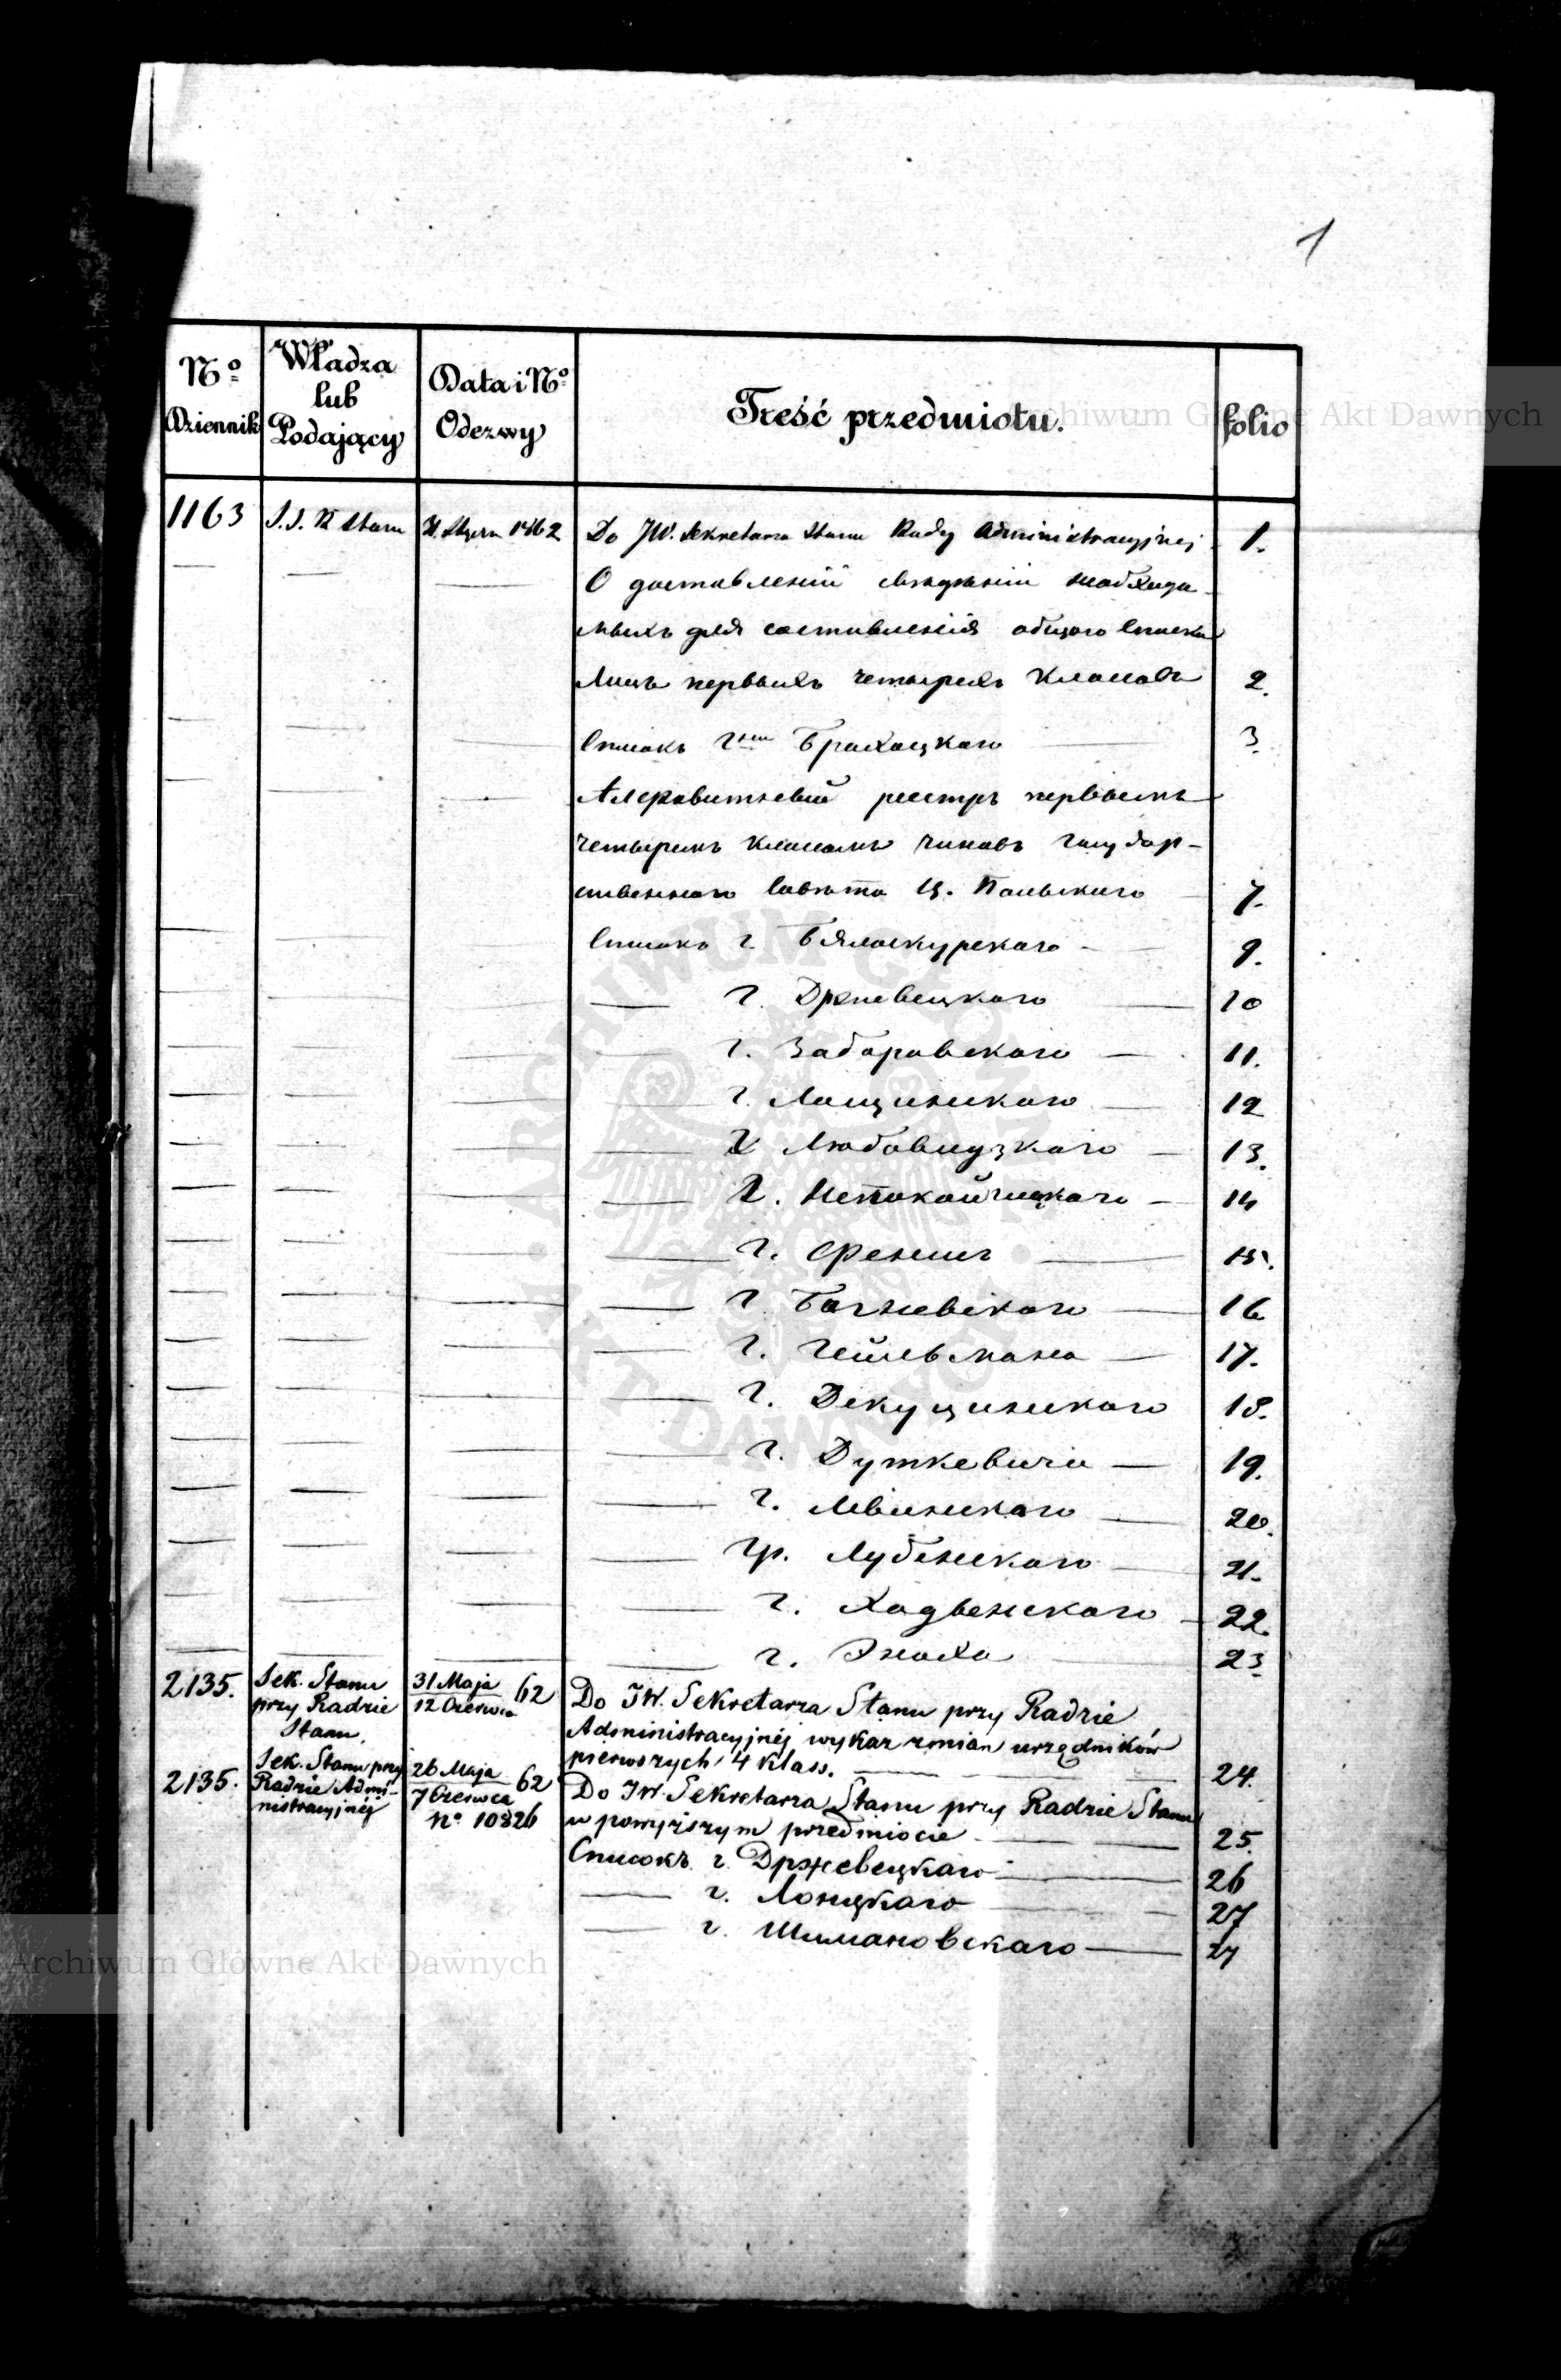 1
Nº Dziennik
Władza lub Podający
Data i Nº Odezwy
Treść przedmiotu.
folio
1163 S. S. R Stanu 1862 Do JW. Sekretarza Stanu Rady Administracyjnej 1.
О доставленіи свѣдѣній необходи-
мыхъ для составленія общаго списка
лицъ первыхъ четырехъ классовъ 2.
Списокъ Брохоцкаго 3
Алфавитный реестръ первымъ
четыремъ классамъ чиновъ Государ-
ственнаго Совѣта Ц. Польскаго 7.
Списокъ г. Бялоскурскаго 9.
г. Држевецкаго 10
г. Заборовскаго 11.
г. Лощинскаго 12
г. Любовидзкаго 13.
г. Непокойчицкаго 14
г. Феншъ 15.
г. Богневскаго 16
г. Гейльмана 17.
г. Декуцинскаго 18.
г. Дуткевича 19.
г. 20.
гр. Лубенскаго 21.
г. Ходзенскаго 22.
г. Эноха 23
2135. Sek. Stanu przy Radzie Stanu, 31 Maja 12 Czerwca 62 Do JW. Sekretarza Stanu przy Radzie
Administracyjnéj wykaz zmian urzędników
pierwszych 4 klass. 24.
2135. Sek. Stanu przy Radzie Admi-
nistracyjnéj 26 Maja 7 Czerwca 62 Nº 10826 Do JW. Sekretarza Stanu przy Radzie Stanu
w powyższym przedmiocie 25.
Списокъ г. Држевецкаго 26
г. Лонцкаго 27
г. Шимановскаго 27
ARCHIWUM GŁÓWNE AKT DAWNYCH
Archiwum Główne Akt Dawnych
Archiwum Główne Akt Dawnych